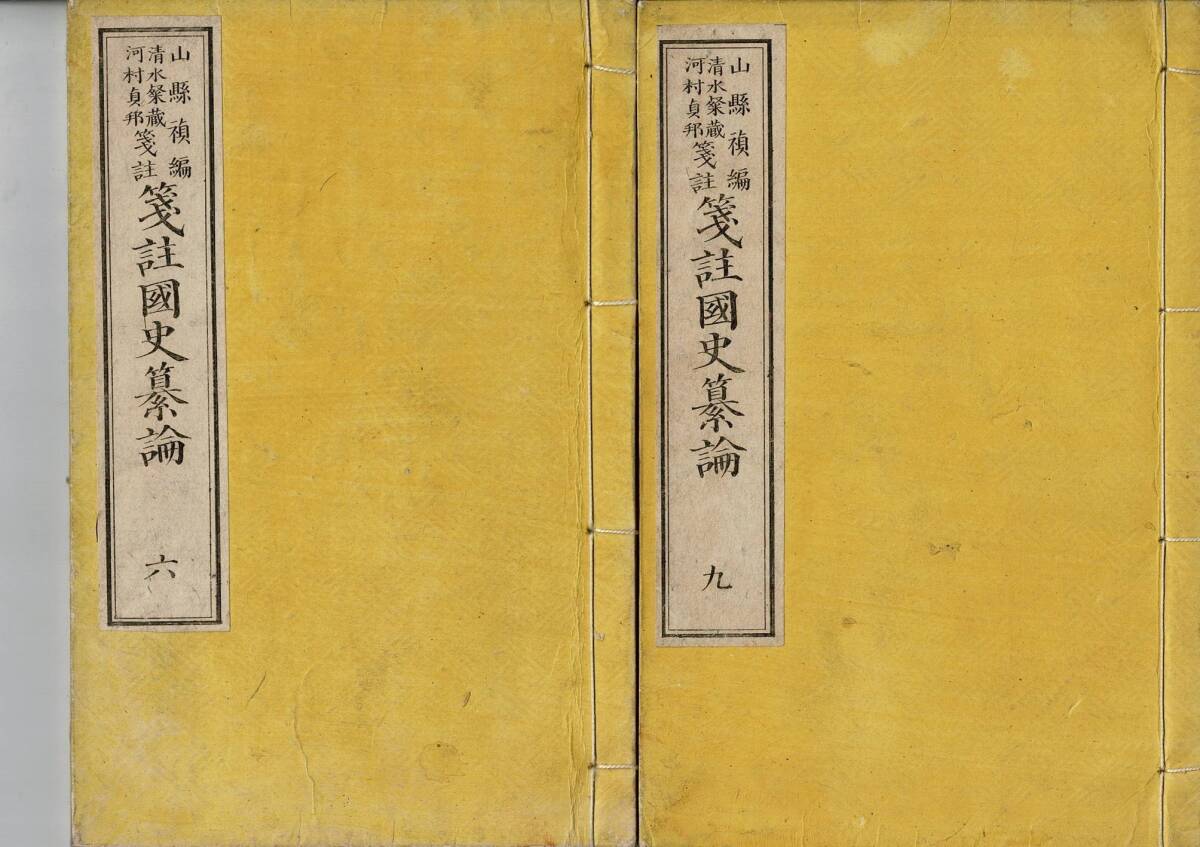 山縣禎編
清水粲藏
河村貞邦
箋註
箋註國史纂論
六
山縣禎編
清水粲藏
河村貞邦
箋註
箋註國史纂論
九